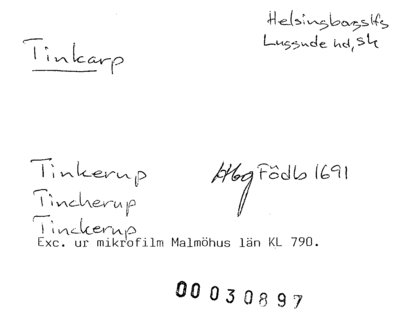 Tinkarp
Helsingborgslfs
Luggude hd, Sk
Tinkerup
Hbg Födb 1691
Tincherup
Tinckerup
Exc. ur mikrofilm Malmöhus län KL 790.
00030897